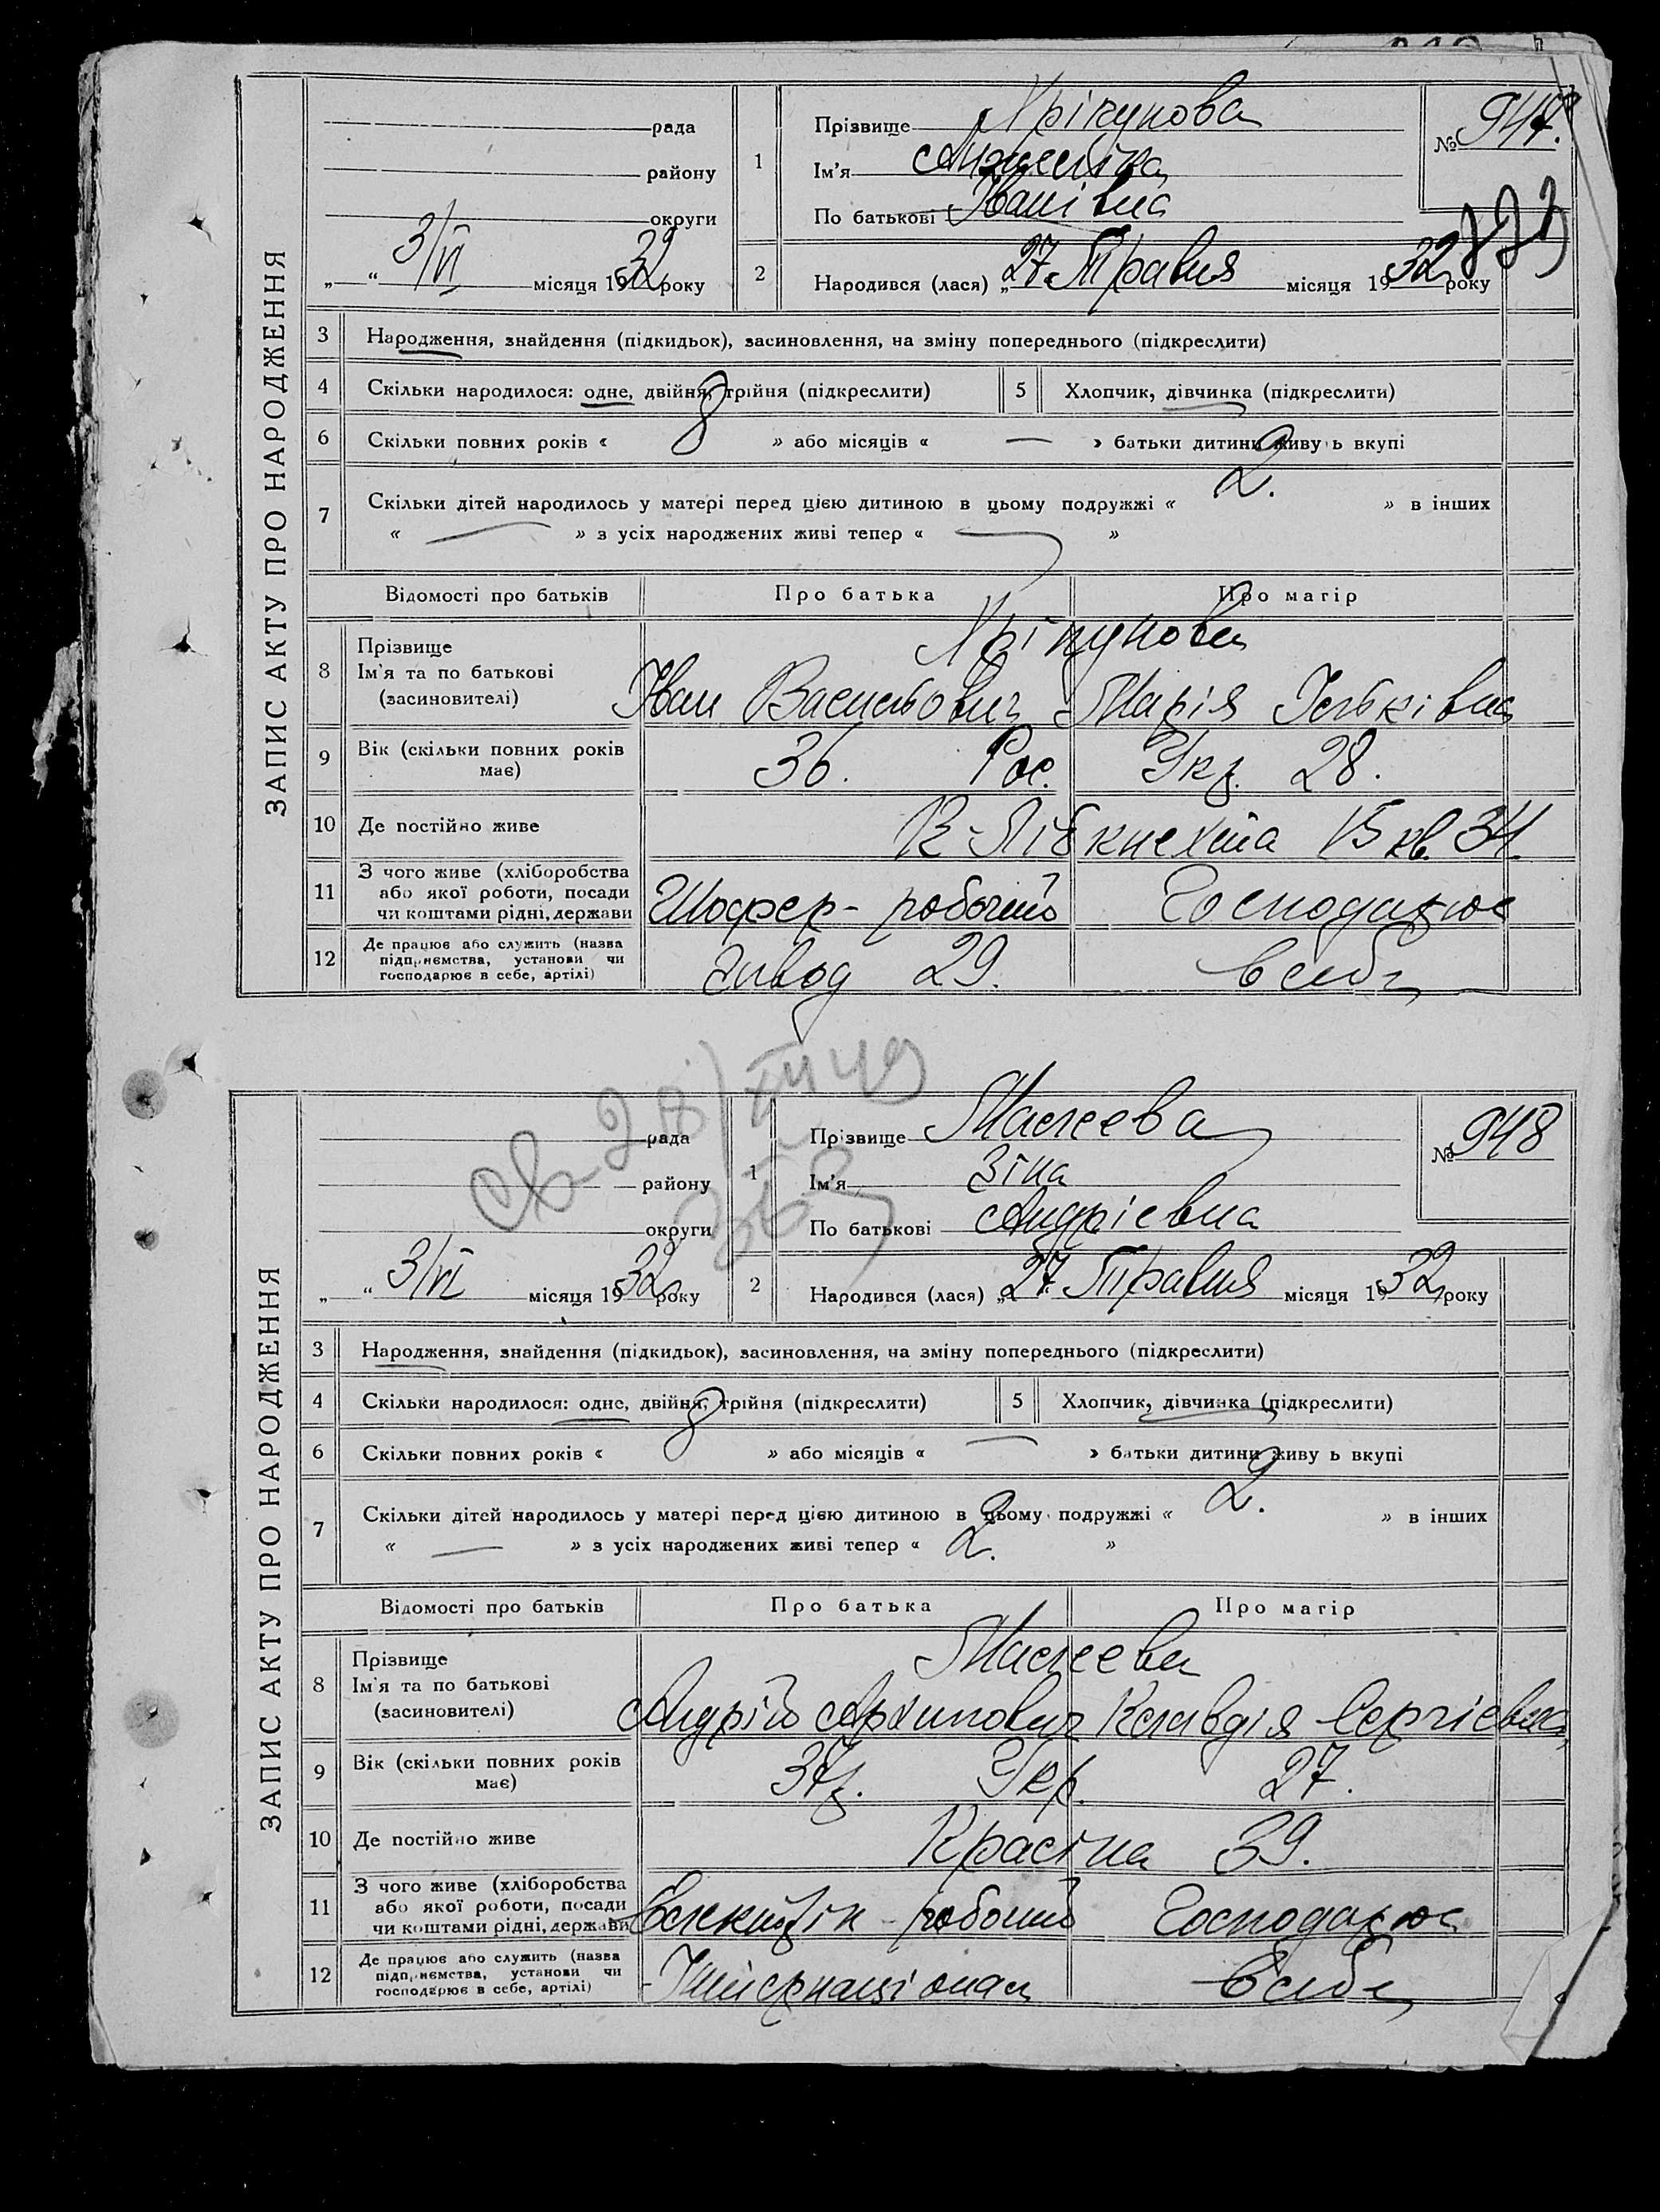 ЗАПИС АКТУ ПРО НАРОДЖЕННЯ
рада
району
округи
„ “ 3/VI місяця 1932 року
1
Прізвище
Ім'я
По батькові Іванівна
№ 947.
2
Народився (лася) „27 Травня місяця 1932 року
3 Народження, знайдення (підкидьок), засиновлення, на зміну попереднього (підкреслити)
4 Скільки народилося: одне, двійня, трійня (підкреслити)
5 Хлопчик, дівчинка (підкреслити)
6 Скільки повних років « 8 » або місяців « — » батьки дитини живуть вкупі
7 Скільки дітей народилось у матері перед цією дитиною в цьому подружжі « 2. » в інших
« — » з усіх народжених живі тепер « — »
Відомості про батьків Про батька Про матір
8 Прізвище
Ім'я та по батькові Іван Васильович Марія Ільківна
(засновителі)
9 Вік (скільки повних років має) 36. Рос. Укр. 28.
10 Де постійно живе К-Лібкнехта 15 кв. 34.
11 З чого живе (хліборобства або якої роботи, посади чи коштами рідні, держави Шофер - робочий Господарює
12 Де працює або служить (назва підприємства, установи чи господарює в себе, артілі) завод 29. в себе
ЗАПИС АКТУ ПРО НАРОДЖЕННЯ
рада
району
округи
„ “ 3/VI місяця 1932 року
1
Прізвище Маслеєва
Ім'я Зіна
По батькові Андріевна
№ 948
2
Народився (лася) „27 Травня місяця 1932 року
3 Народження, знайдення (підкидьок), засиновлення, на зміну попереднього (підкреслити)
4 Скільки народилося: одне, двійня, трійня (підкреслити)
5 Хлопчик, дівчинка (підкреслити)
6 Скільки повних років « 8 » або місяців « — » батьки дитини живуть вкупі
7 Скільки дітей народилось у матері перед цією дитиною в цьому подружжі « 2. » в інших
« — » з усіх народжених живі тепер « 2. »
Відомості про батьків Про батька Про матір
8 Прізвище Маслеєви
Ім'я та по батькові Андрій Архипович Клавдія Сергієвна
(засновителі)
9 Вік (скільки повних років має) Укр. 27.
10 Де постійно живе Красіна 39.
11 З чого живе (хліборобства або якої роботи, посади чи коштами рідні, держави Електрік - робочий Господарює
12 Де працює або служить (назва підприємства, установи чи господарює в себе, артілі) Інтернаціонал в себе